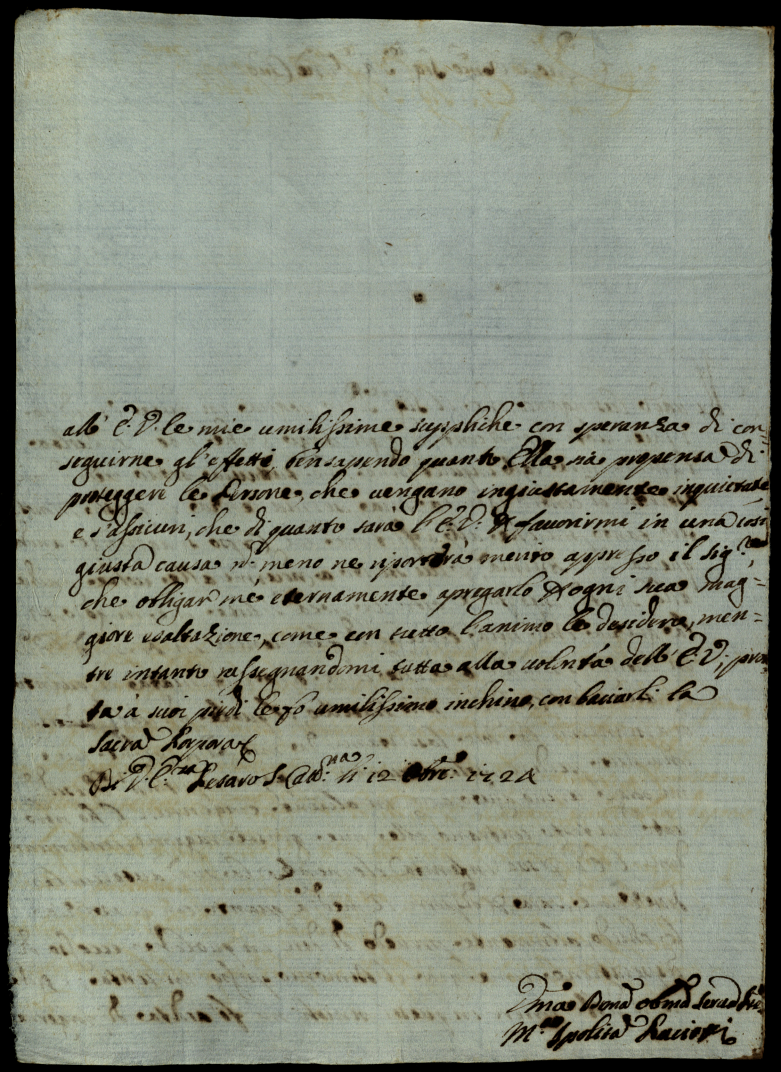 all' E. V. le mie umilissime suppliche con speranza di con-
seguirne gl'effetti, ben sapendo quanto Ella sia propensa di
proteggere le Persone, che vengano ingiustamente inquietate
e s'assicuri, che di quanto sarà l'E. V. p favorirmi in una così
giusta causa nõ meno ne riporterà merito appresso il Sig.re,
che obligar mè eternamente a pregarlo p ogni sua mag-
giore esaltazione, come con tutto l'animo le desidero, men-
tre intanto rassegnandomi tutta alla volontà dell'E. V.,
ta à suoi piedi le fò umilissimo inchino, con baciarli la
Sacra Porpora
Di V. E.za Pesaro S. li 12 Obre: 1724
Uma Dena obma Serva
M.a Ipolita